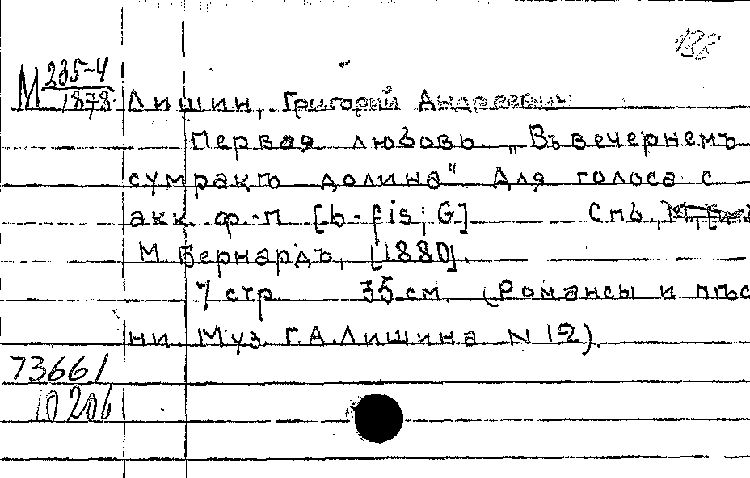 М 235-4
1878
Лишин, Григорий Андреевич
Первая любовь „Въ вечернемъ
сумракѣ долина" Для голоса с
акк. ф.-п. [b-fis; G] Спб.,
М. Бернардъ, [1880].
7 стр 35 см. (Романсы и пѣс
ни Муз. Г.А. Лишина N 12).
73661
10206